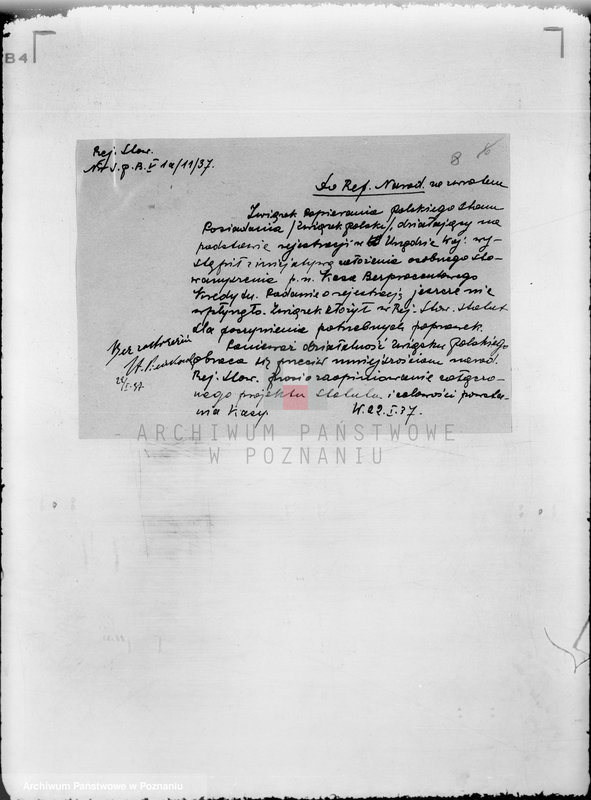 B4
Rej. Stow.
Nr S.p.B. V 1a/11/37.
8
Do Ref. Narod. ze zwrotem
Związek Popierania Polskiego Stanu
Posiadania /Związek Polski/, działający na
podstawie rejestracji w Urzędzie Woj. wy-
stąpił z inicjatywą założenia osobnego sto-
warzyszenia p.n. Kasa Bezprocentowego
Kredytu. Podanie o rejestrację jeszcze nie
wpłynęło. Związek złożył w Rej. Stow. statut
dla poczynienia potrzebnych poprawek.
Ponieważ działalność Związku Polskiego
obraca się przeciw mniejszościom narod.
Rej. Stow. prosi o zaopiniowanie załączo-
nego projektu statutu i celowości powsta-
nia Kasy. 22.I.37.
Bez zastrzeżeń
I.37
ARCHIWUM PAŃSTWOWE
W POZNANIU
Archiwum Państwowe w Poznaniu